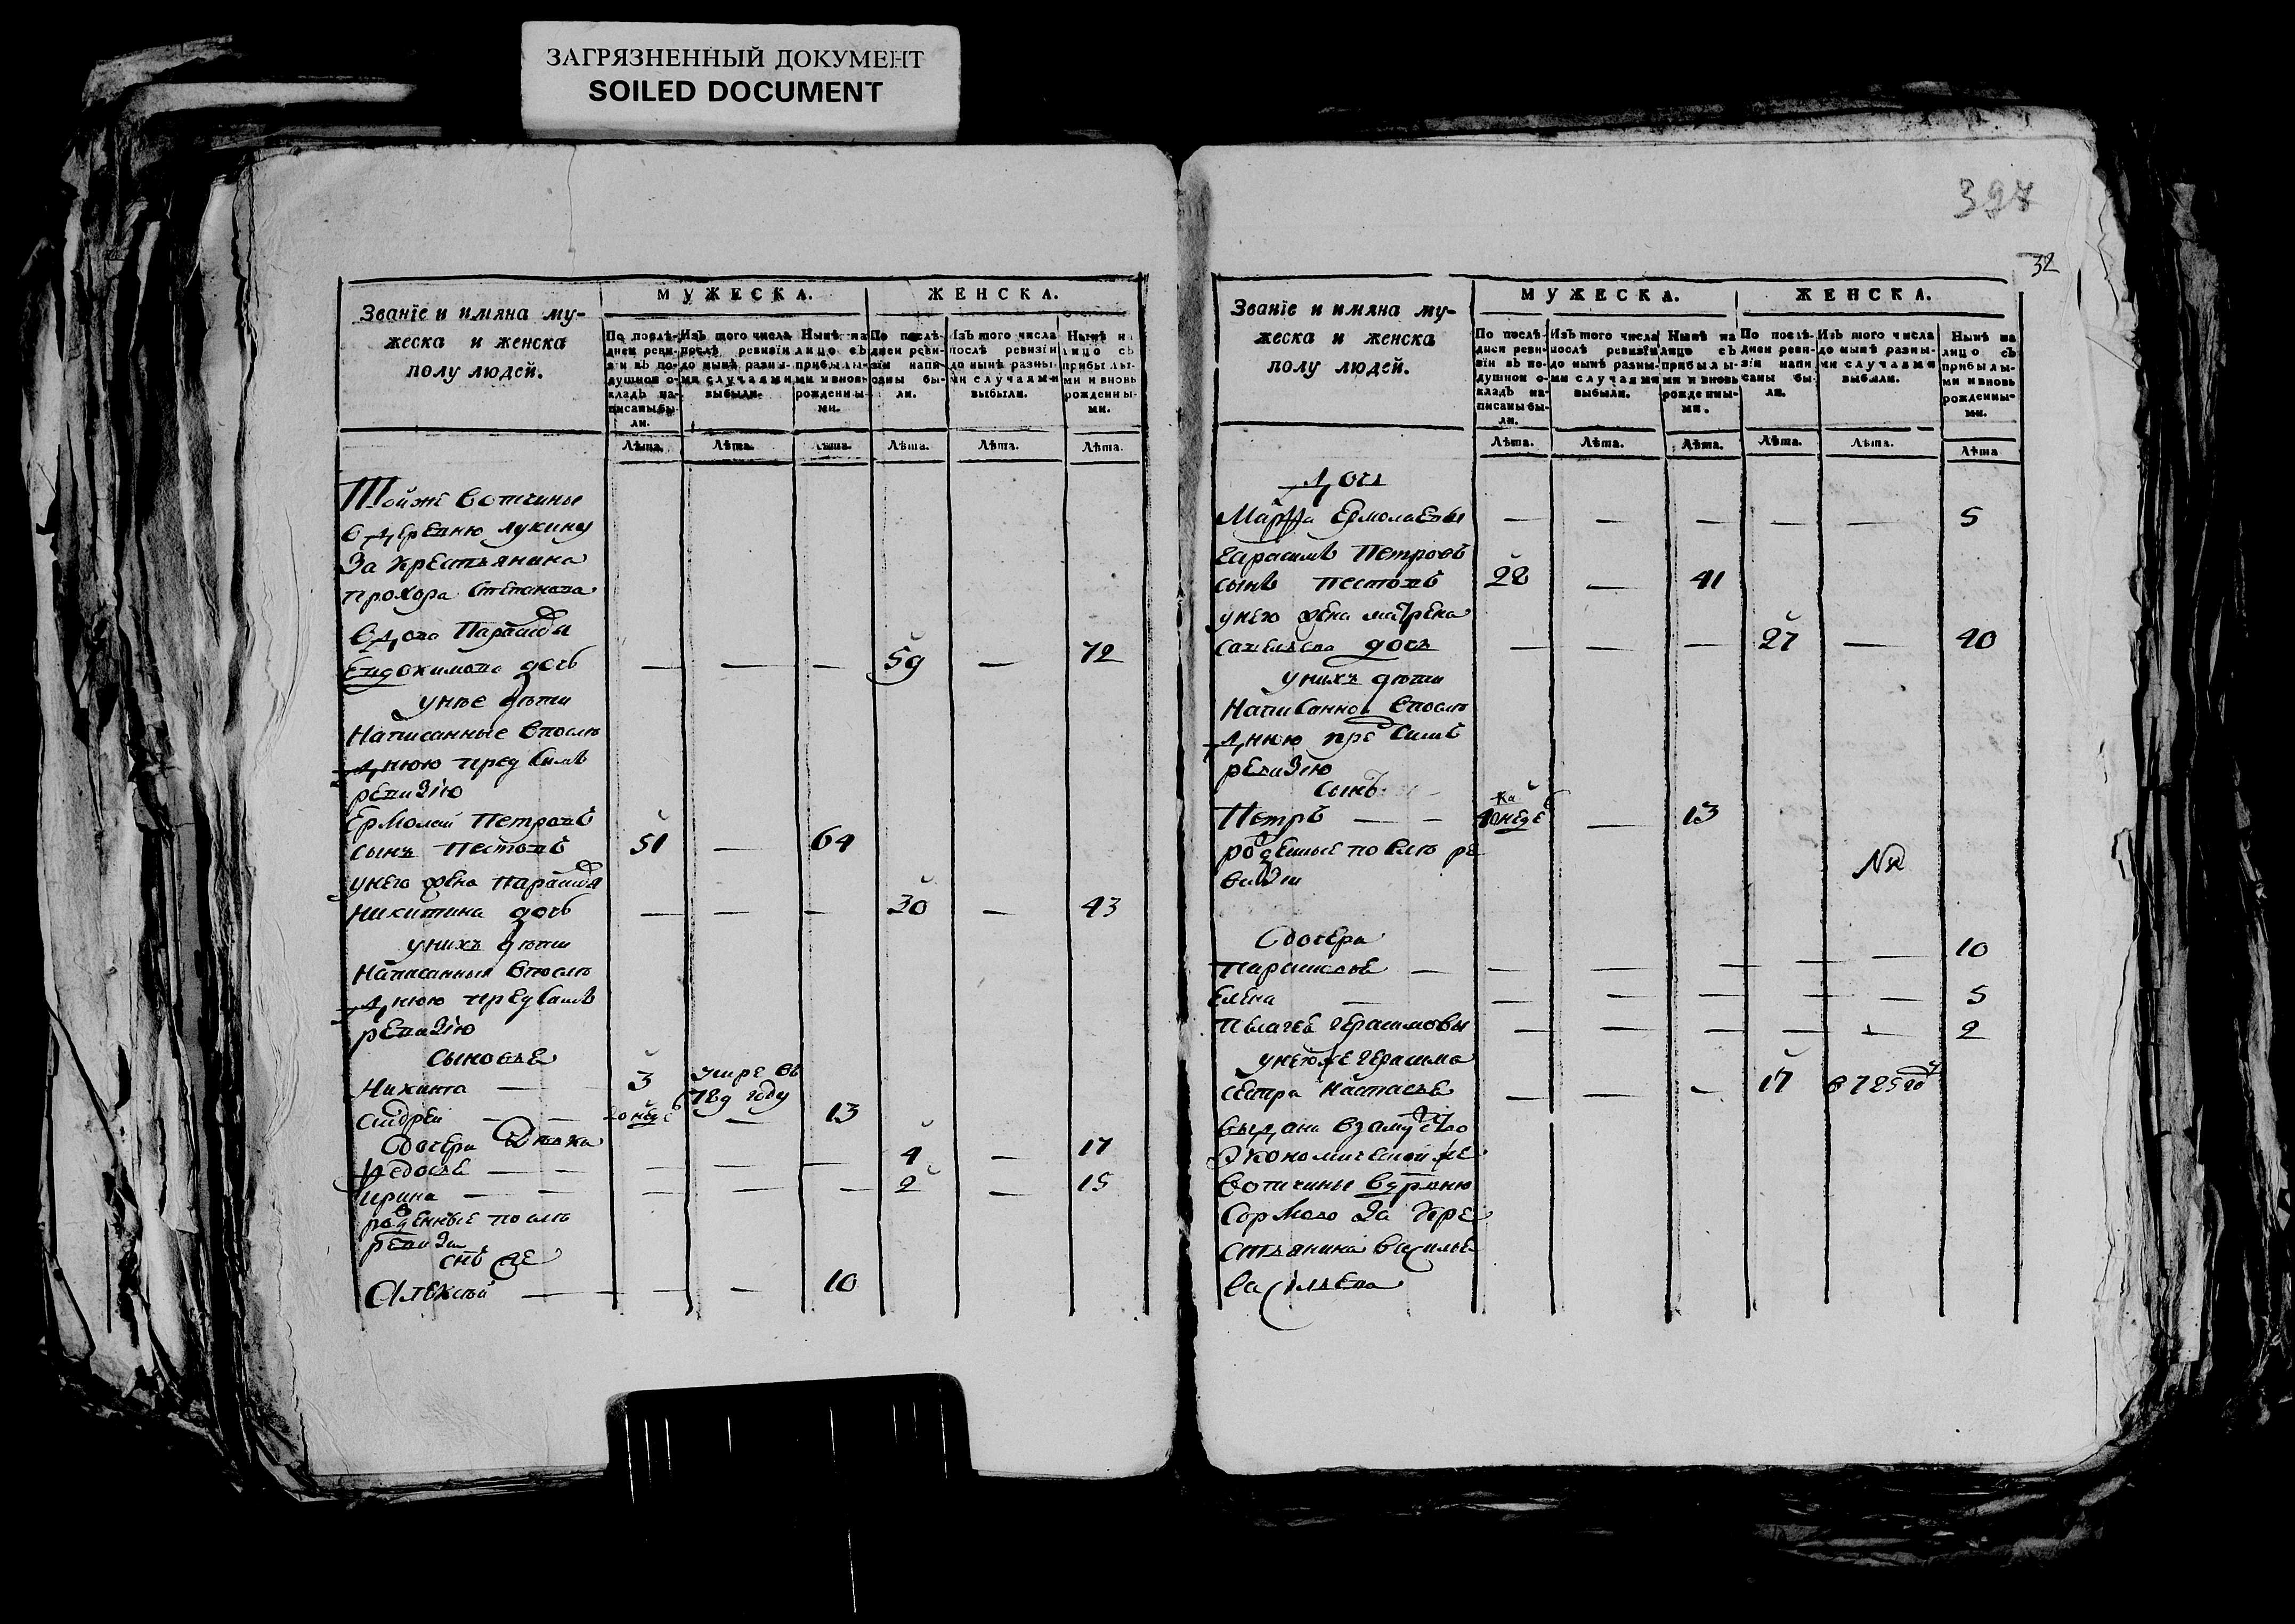 ЗАГРЯЗНЕННЫЙ ДОКУМЕНТ
SOILED DOCUMENT
Званїе и имяна му-
жеска и женска
полу людей.
МУЖЕСКА.
ЖЕНСКА.
По послѣ-
дней реви-
зїи въ по-
душной о-
кладъ на-
писаны бы-
ли.
Изъ того числа
послѣ ревизїи
до нынѣ разны-
ми случаями
выбыли.
Нынѣ на
лицо съ
прибылы-
ми и вновь
рожденны-
ми.
По послѣ-
дней реви-
зїи напи-
саны бы-
ли.
Изъ того числа
послѣ ревизїи
до нынѣ разны-
ми случаями
выбыли.
Нынѣ н
лицо съ
прибылы-
ми и вновь
рожденны-
ми.
Лѣта. Лѣта. Лѣта. Лѣта. Лѣта. Лѣта.
Тойже вотчины
в деревню лукину
За крестьянина
прохора Степанова
вдова
Евдокимова дочь — — — 59 — 72
унее дети
Написанные впосле
днюю пред симъ
ревизию
Ермолай Петровъ
сынъ Пестовъ 51 — 64
унего жена
Никитина дочь — — — 30 — 43
унихъ дети
Написанныя впосле
днюю предсимъ
ревизию
сыновья
Никита — 3 умре въ
789 году
Андрей — — 20 неде — 13
дочери
Федосье — — — — 4 — 17
Ирина — — — — — 2 — 15
роденные после
ревизии
снъ же
Алексей — — — 10
397
32
Званїе и имяна му-
жеска и женска
полу людей.
МУЖЕСКА.
ЖЕНСКА.
По послѣ-
дней реви-
зїи въ по-
душной о-
кладъ на-
писаны бы-
ли.
Изъ того числа
послѣ ревизїи
до нынѣ разны-
ми случаями
выбыли.
Нынѣ на
лицо съ
прибылы-
ми и вновь
рожденны-
ми.
По послѣ-
дней реви-
зїи напи
саны бы-
ли.
Изъ того числа
до нынѣ разны-
ми случаями
выбыли.
Нынѣ на
лицо съ
прибылы-
ми и вновь
рожденны-
ми.
Лѣта. Лѣта. Лѣта. Лѣта. Лѣта. Лѣта
дочь
Марфа Ермолаевы — — — — — 5
Герасимъ Петровъ
сынъ Пестовъ 28 — 41
унего жена матрена
Савельева дочь — — — 27 — 40
унихъ дети
Написанной впосле
днюю пред симъ
ревизию
сынъ
Петръ — — 10 неде — 13
роденные после ре
визии
дочери
Парасковье — — — — — — 10
Елена — — — — — — 5
Пелагеѣ Герасимовы — — — — — 2
унегоже Герасима
сестра Настасье — — — 17 в 785 го
выдана взамужство
Экономической же
вотчины вдрвню
Сормово за кре
стьянина василья
Васильева